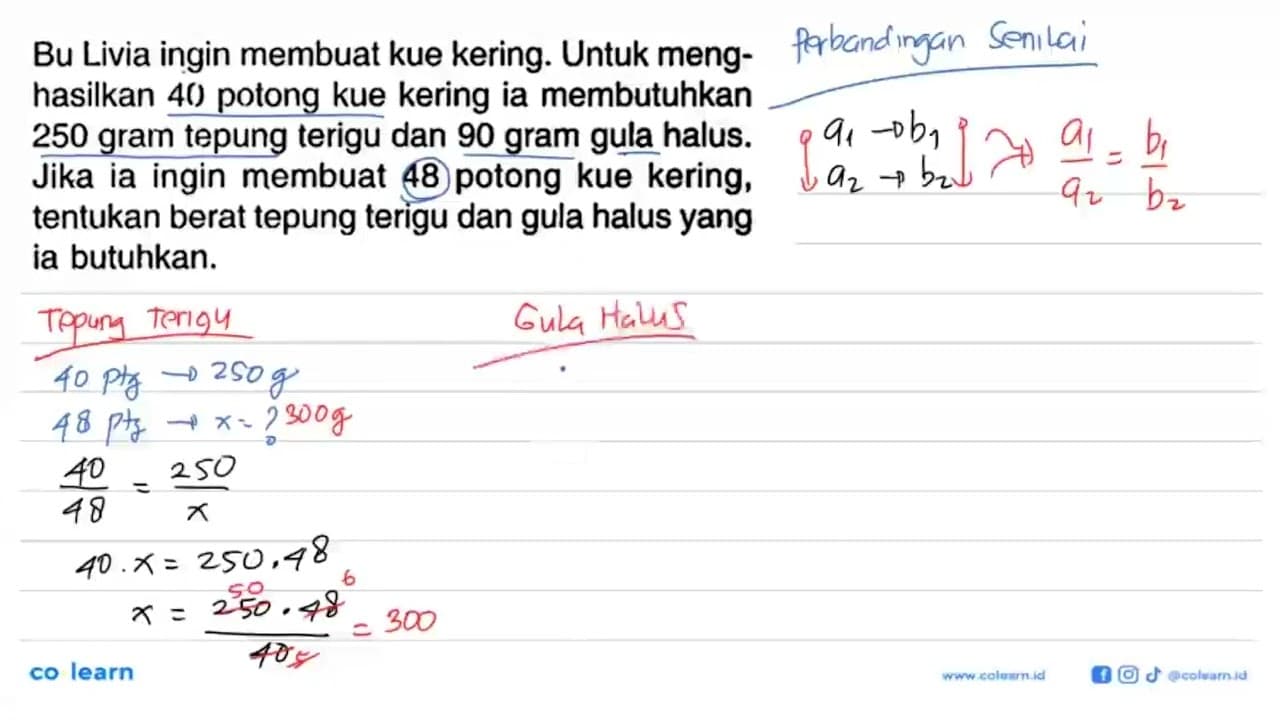 Bu Livia ingin membuat kue kering. Untuk meng-
hasilkan 40 potong kue kering ia membutuhkan
250 gram tepung terigu dan 90 gram gula halus.
Jika ia ingin membuat 48 potong kue kering,
tentukan berat tepung terigu dan gula halus yang
ia butuhkan.
Perbandingan Senilai
a₁ → b₁
a₂ → b₂
a₁/a₂ = b₁/b₂
Tepung Terigu
40 ptg → 250 g
48 ptg → x = ? 300 g
40/48 = 250/x
40 . x = 250 . 48
50 6
x = 250 . 48 / 40 5 = 300
Gula Halus
co learn
www.colearn.id
@colearn.id